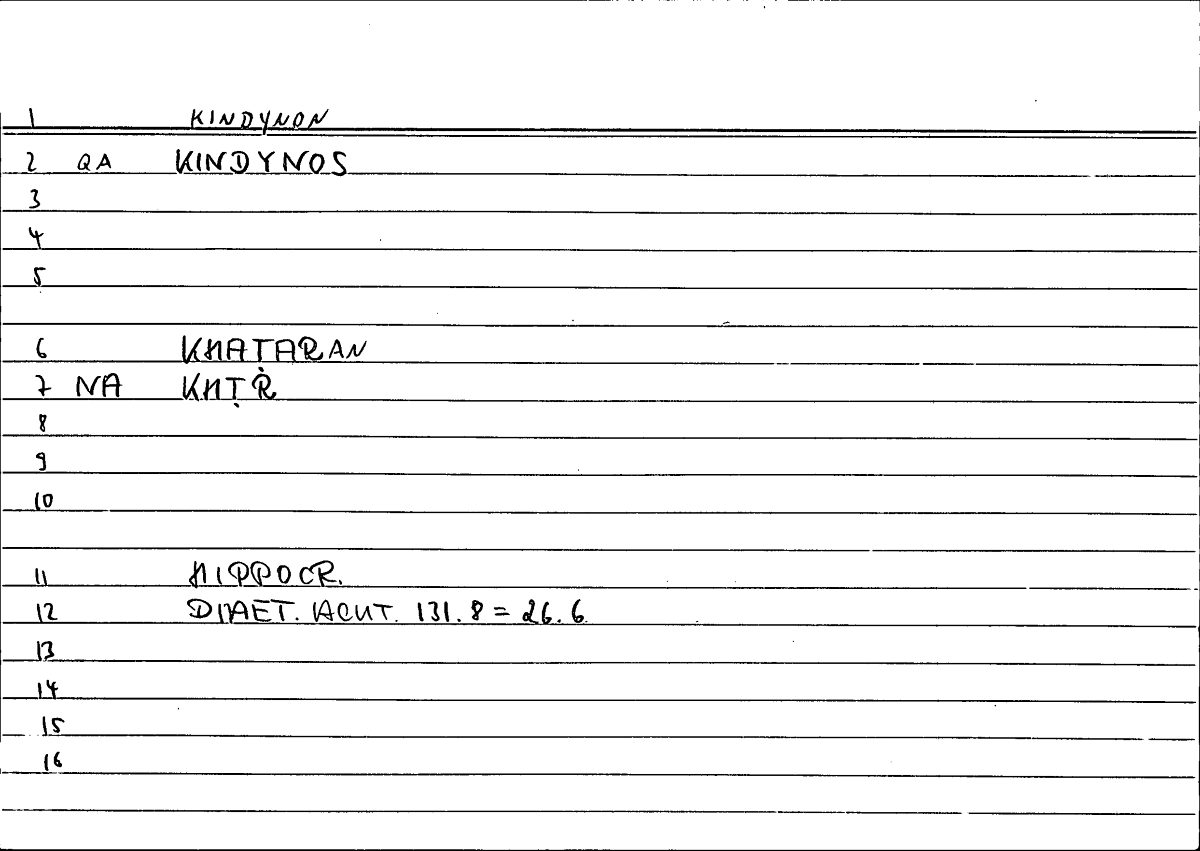 1 KINDYNON
2 QA KINDYNOS
3
4
5
6 KHAṬARAN
7 NA KHṬR
8
9
10
11 HIPPOCR.
12 DIAET. ACUT. 131.8 = 26.6
13
14
15
16